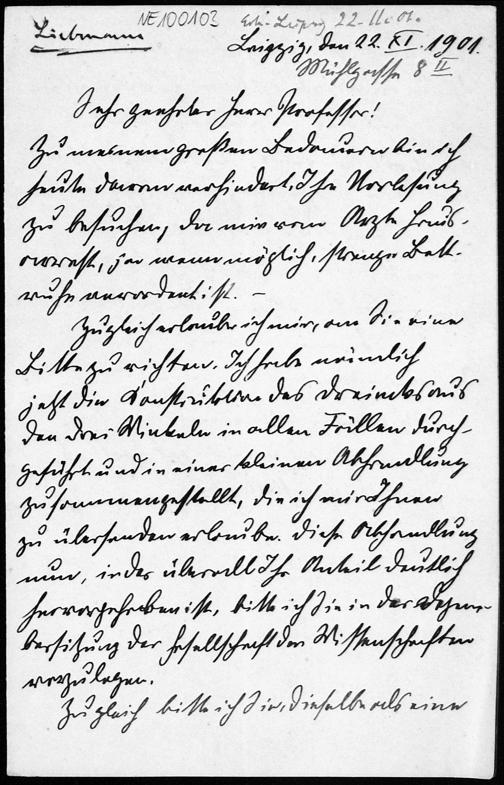 NE100103
Liebmann
Leipzig, den 22. XI. 1901.
Mühlgasse 8 II
Sehr geehrter Herr Professor!
Zu meinem großen Bedauern bin ich
heute daran verhindert, Ihre Vorlesung
zu besuchen, da mir vom Arzte Haus-
arrest, ja wenn möglich, strenge Bett-
ruhe verordnet ist. –
Zugleich erlaube ich mir, an Sie eine
Bitte zu richten. Ich habe nämlich
jetzt die Construktion des Dreiecks aus
den drei Winkeln in allen Fällen durch-
geführt und in einer kleinen Abhandlung
zusammengestellt, die ich mir Ihnen
zu übersenden erlaube. Diese Abhandlung
nun, in der überall Ihr Anteil deutlich
hervorgehoben ist, bitte ich Sie in der Dezem-
bersitzung der Gesellschaft der Wissenschaften
vorzulegen.
Zugleich bitte ich Sie, dieselbe als eine